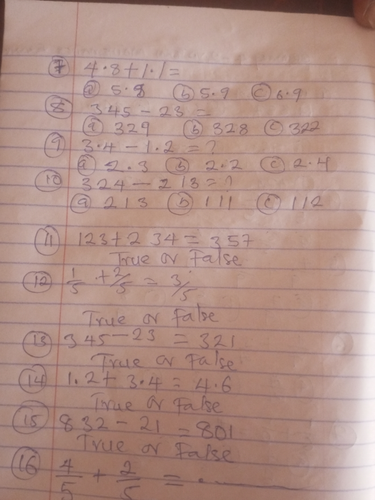 7 4.8+1.1=
a 5.8 b 5.9 c 6.9
8 345-23=
a 329 b 328 c 322
9 3.4-1.2=?
a 2.3 b 2.2 c 2.4
10 324-213=?
a 213 b 111 c 112
11 123+234=357
True or False
12 1/5+2/5=3/5.
True or False
13 345-23=321
True or False
14 1.2+3.4=4.6
True or False
15 832-21=801
True or False
16 4/5+2/5=